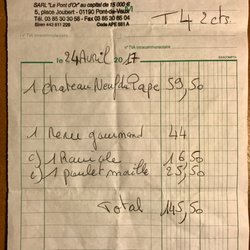 SARL "Le Pont d'Or" au capital de 15 000 €
5, place Joubert - 01190 Pont-de-Vaux
T 4 2 cts
Tél. 03 85 30 30 56 - Fax 03 85 30 65 04
Code APE 551 A
le 24 Avril 2017
1 chateau Neuf du Pape 59,50
1 Menu gourmand 44
1 16,50
1 poulet maille 25,50
Total 145,50